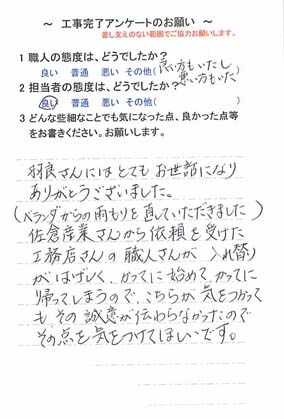 ～ 工事完了アンケートのお願い ～
差し支えのない範囲でご協力お願いします。
1 職人の態度は、どうでしたか?
良い方もいたし
良い 普通 悪い その他( 悪い方もいた )
2 担当者の態度は、どうでしたか?
良い 普通 悪い その他( )
3 どんな些細なことでも気になった点、良かった点等
をお書きください。お願いします。
羽良さんにはとてもお世話になり
ありがとうございました。
(ベランダからの雨もりを直していただきました)
佐倉産業さんから依頼を受けた
工務店さんの職人さんが 入れ替り
がはげしく、かってに始めて、かってに
帰ってしまうので、こちらが気をつかって
も その誠意が伝わらなかったので
その点を気をつけてほしいです。